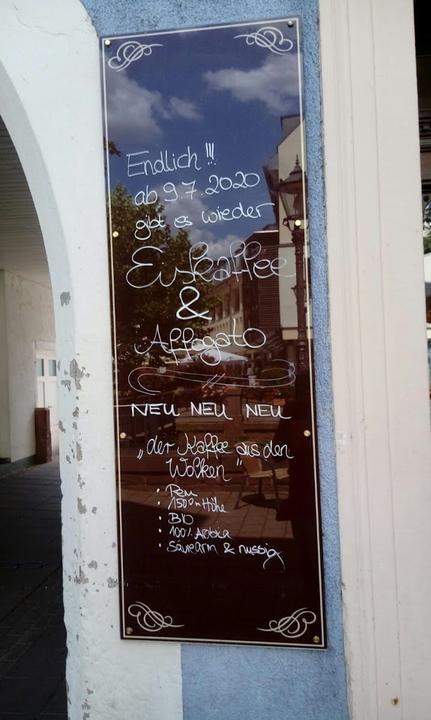 Endlich!!!
ab 9.7.2020
gibt es wieder
Eiskaffee
&
Affogato
NEU NEU NEU
„der Kaffee aus den
Wolken"
• Peru
• 1500m Höhe
• BIO
• 100% Arabica
• säurearm & nussig